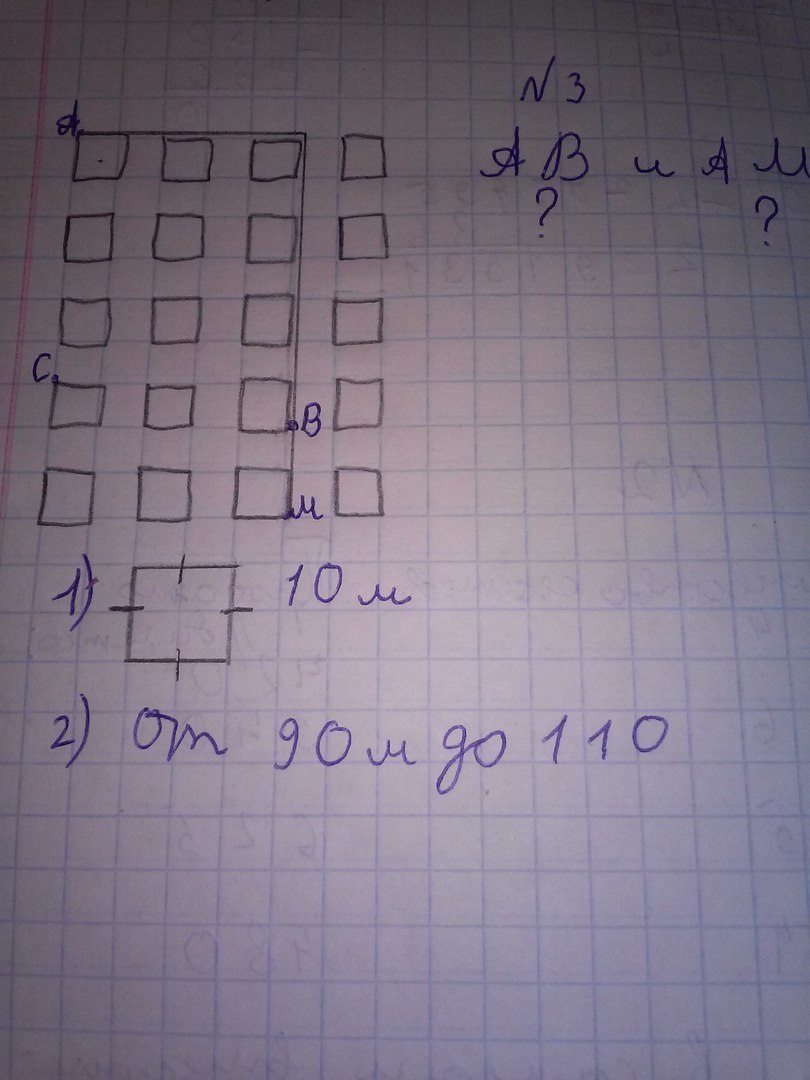 №3
А
АВ и АМ
? ?
С
В
М
1) 10 м
2) От 90 м до 110